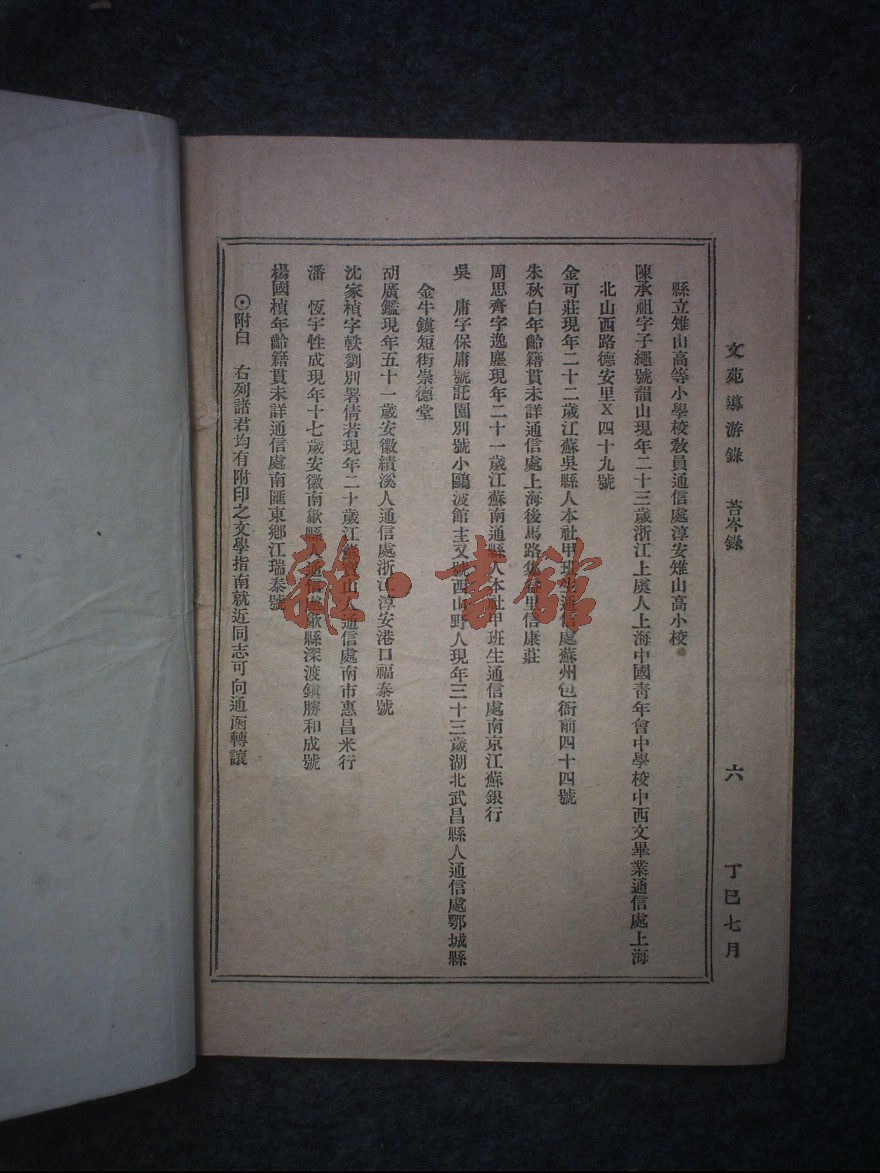 文苑導游錄 苔岑錄 六 丁巳七月
縣立雉山高等小學校教員通信處淳安雉山高小校
陳承祖字子繩號韻山現年二十三歲浙江上虞人上海中國青年會中學校中西文畢業通信處上海
北山西路德安里X四十九號
金可莊現年二十二歲江蘇吳縣人本社甲班生通信處蘇州包衙前四十四號
朱秋白年齡籍貫未詳通信處上海後馬路集益里信康莊
周思齊字逸塵現年二十一歲江蘇南通縣人本社甲班生通信處南京江蘇銀行
吳 庸字保庸號託園別號小鷗波館主又號西山野人現年三十三歲湖北武昌縣人通信處鄂城縣
金牛鎮短街崇德堂
胡廣鑑現年五十一歲安徽績溪人通信處浙江淳安港口福泰號
沈家楨字軼劉別署倩若現年二十歲江蘇寶山人通信處南市惠昌米行
潘 恆字性成現年十七歲安徽南歙縣人通信處歙縣深渡鎮勝和成號
楊國楨年齡籍貫未詳通信處南匯東鄉江瑞泰號
⊙附白 右列諸君均有附印之文學指南就近同志可向通函轉讓
雜·書館